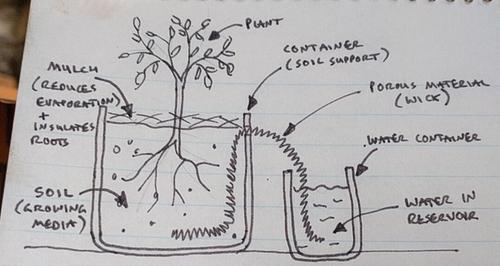 PLANT
CONTAINER
(SOIL SUPPORT)
MULCH
(REDUCES
EVAPORATION)
+
INSULATES
ROOTS
POROUS MATERIAL
(WICK)
WATER CONTAINER
SOIL
(GROWING
MEDIA)
WATER IN
RESERVOIR